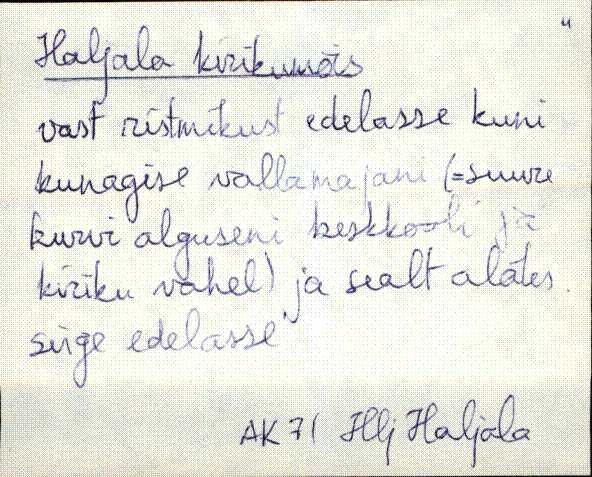 "
Haljala kirikumõis
vast ristmikust edelasse kuni
kunagise vallamajani (=suure
kurvi alguseni keskkooli ja
kiriku vahel) ja sealt alates
sirge edelasse
AK 71 Hlj Haljala